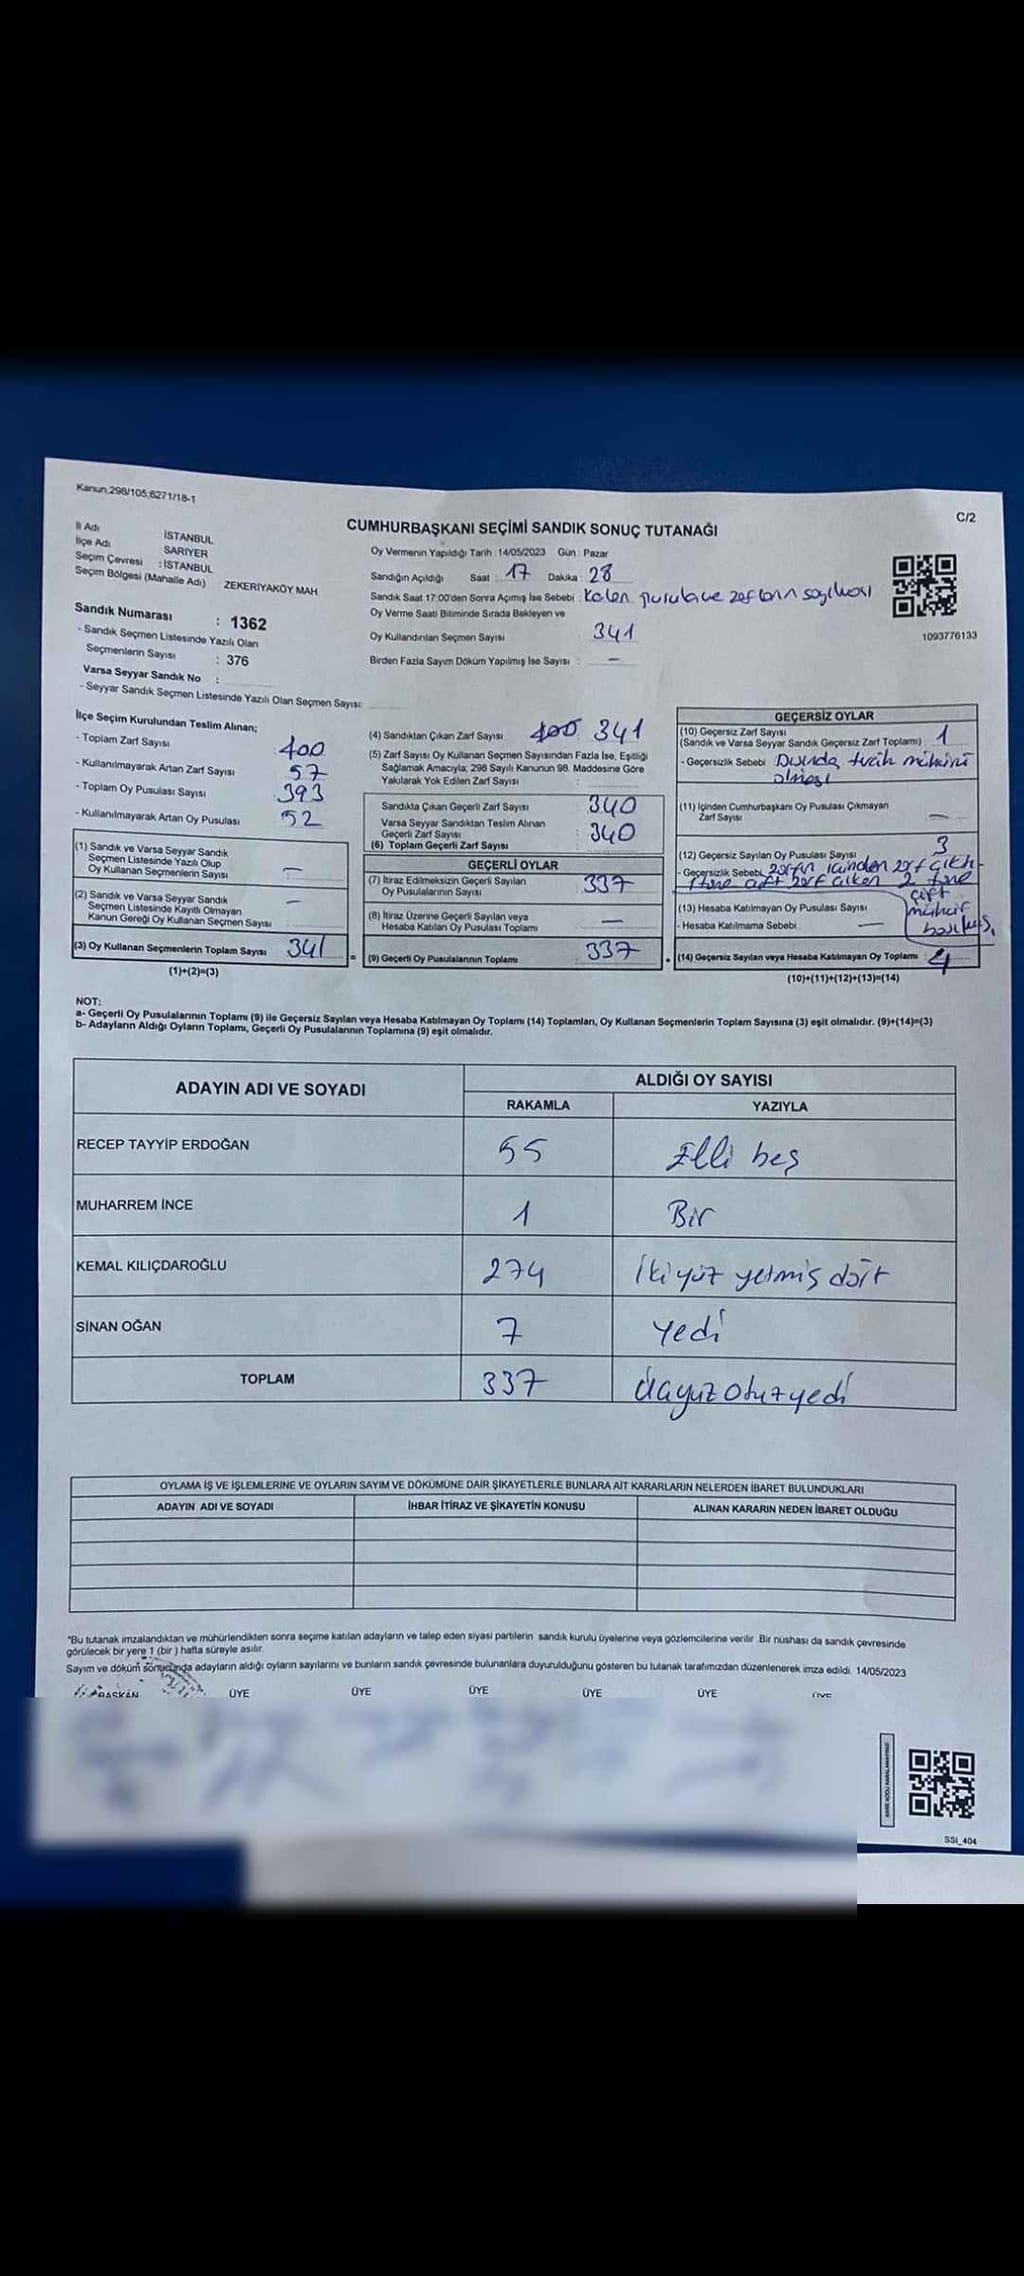 Kanun:298/105;6271/18-1
C/2
CUMHURBAŞKANI SEÇİMİ SANDIK SONUÇ TUTANAĞI
İl Adı İSTANBUL
İlçe Adı SARIYER
Seçim Çevresi : İSTANBUL
Seçim Bölgesi (Mahalle Adı) ZEKERİYAKÖY MAH.
Sandık Numarası : 1362
- Sandık Seçmen Listesinde Yazılı Olan
Seçmenlerin Sayısı : 376
Varsa Seyyar Sandık No :
- Seyyar Sandık Seçmen Listesinde Yazılı Olan Seçmen Sayısı:
Oy Vermenin Yapıldığı Tarih : 14/05/2023 Gün : Pazar
Sandığın Açıldığı Saat : 17 Dakika : 28
Sandık Saat 17:00'den Sonra Açımış İse Sebebi : Kalan pusula ve zarfların sayılması
Oy Verme Saati Bitiminde Sırada Bekleyen ve
Oy Kullandırılan Seçmen Sayısı : 341
Birden Fazla Sayım Döküm Yapılmış İse Sayısı : —
1093776133
İlçe Seçim Kurulundan Teslim Alınan;
- Toplam Zarf Sayısı 400
- Kullanılmayarak Artan Zarf Sayısı 57
- Toplam Oy Pusulası Sayısı 393
- Kullanılmayarak Artan Oy Pusulası 52
(1) Sandık ve Varsa Seyyar Sandık
Seçmen Listesinde Yazılı Olup
Oy Kullanan Seçmenlerin Sayısı : —
(2) Sandık ve Varsa Seyyar Sandık
Seçmen Listesinde Kayıtlı Olmayan
Kanun Gereği Oy Kullanan Seçmen Sayısı : —
(3) Oy Kullanan Seçmenlerin Toplam Sayısı 341
(1)+(2)=(3)
(4) Sandıktan Çıkan Zarf Sayısı 400 341
(5) Zarf Sayısı Oy Kullanan Seçmen Sayısından Fazla İse, Eşitliği
Sağlamak Amacıyla; 298 Sayılı Kanunun 98. Maddesine Göre
Yakılarak Yok Edilen Zarf Sayısı :
Sandıkta Çıkan Geçerli Zarf Sayısı : 340
Varsa Seyyar Sandıktan Teslim Alınan
Geçerli Zarf Sayısı : 340
(6) Toplam Geçerli Zarf Sayısı
GEÇERLİ OYLAR
(7) İtiraz Edilmeksizin Geçerli Sayılan
Oy Pusulalarının Sayısı : 337
(8) İtiraz Üzerine Geçerli Sayılan veya
Hesaba Katılan Oy Pusulası Toplamı : —
= (9) Geçerli Oy Pusulalarının Toplamı : 337
GEÇERSİZ OYLAR
(10) Geçersiz Zarf Sayısı
(Sandık ve Varsa Seyyar Sandık Geçersiz Zarf Toplamı) 1
- Geçersizlik Sebebi Dışında tercih mühürü
olması
(11) İçinden Cumhurbaşkanı Oy Pusulası Çıkmayan
Zarf Sayısı —
(12) Geçersiz Sayılan Oy Pusulası Sayısı 3
- Geçersizlik Sebebi zarfın içinden zarf çıktı
1 tane çift zarf çıkan 2 tane
çift
mühür
basılmış
(13) Hesaba Katılmayan Oy Pusulası Sayısı
- Hesaba Katılmama Sebebi —
+ (14) Geçersiz Sayılan veya Hesaba Katılmayan Oy Toplamı : 4
(10)+(11)+(12)+(13)=(14)
NOT:
a- Geçerli Oy Pusulalarının Toplamı (9) ile Geçersiz Sayılan veya Hesaba Katılmayan Oy Toplamı (14) Toplamları, Oy Kullanan Seçmenlerin Toplam Sayısına (3) eşit olmalıdır. (9)+(14)=(3)
b- Adayların Aldığı Oyların Toplamı, Geçerli Oy Pusulalarının Toplamına (9) eşit olmalıdır.
ADAYIN ADI VE SOYADI ALDIĞI OY SAYISI
RAKAMLA YAZIYLA
RECEP TAYYİP ERDOĞAN 55 Elli beş
MUHARREM İNCE 1 Bir
KEMAL KILIÇDAROĞLU 274 İkiyüz yetmiş dört
SİNAN OĞAN 7 yedi
TOPLAM 337 üçyüzotuzyedi
OYLAMA İŞ VE İŞLEMLERİNE VE OYLARIN SAYIM VE DÖKÜMÜNE DAİR ŞİKAYETLERLE BUNLARA AİT KARARLARIN NELERDEN İBARET BULUNDUKLARI
ADAYIN ADI VE SOYADI İHBAR İTİRAZ VE ŞİKAYETİN KONUSU ALINAN KARARIN NEDEN İBARET OLDUĞU
*Bu tutanak imzalandıktan ve mühürlendikten sonra seçime katılan adayların ve talep eden siyasi partilerin sandık kurulu üyelerine veya gözlemcilerine verilir. Bir nüshası da sandık çevresinde
görülecek bir yere 1 (bir ) hafta süreyle asılır.
Sayım ve döküm sonucunda adayların aldığı oyların sayılarını ve bunların sandık çevresinde bulunanlara duyurulduğunu gösteren bu tutanak tarafımızdan düzenlenerek imza edildi. 14/05/2023
BAŞKAN ÜYE ÜYE ÜYE ÜYE ÜYE ÜYE
SSI_404